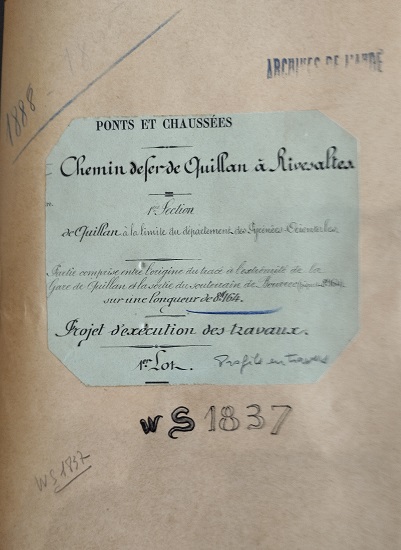 1888
ARCHIVES DE L'AUDE
PONTS ET CHAUSSÉES
Chemin de fer de Quillan à Rivesaltes
1re Section
de Quillan à la limite du département des Pyrénées-Orientales
Partie comprise entre l'origine du tracé à l'extrémité de la
Gare de Quillan et la sortie du souterrain de
sur une longueur de 8k164.
Projet d'exécution des travaux.
1er Lot.
Profils en travers
WS 1837
WS 1837